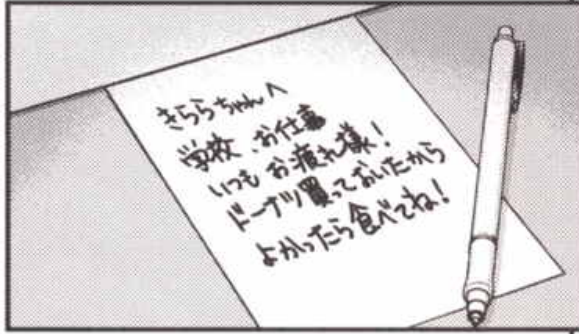 きららちゃんへ
学校、お仕事
いつもお疲れ様!
ドーナツ買っておいたから
よかったら食べてね!